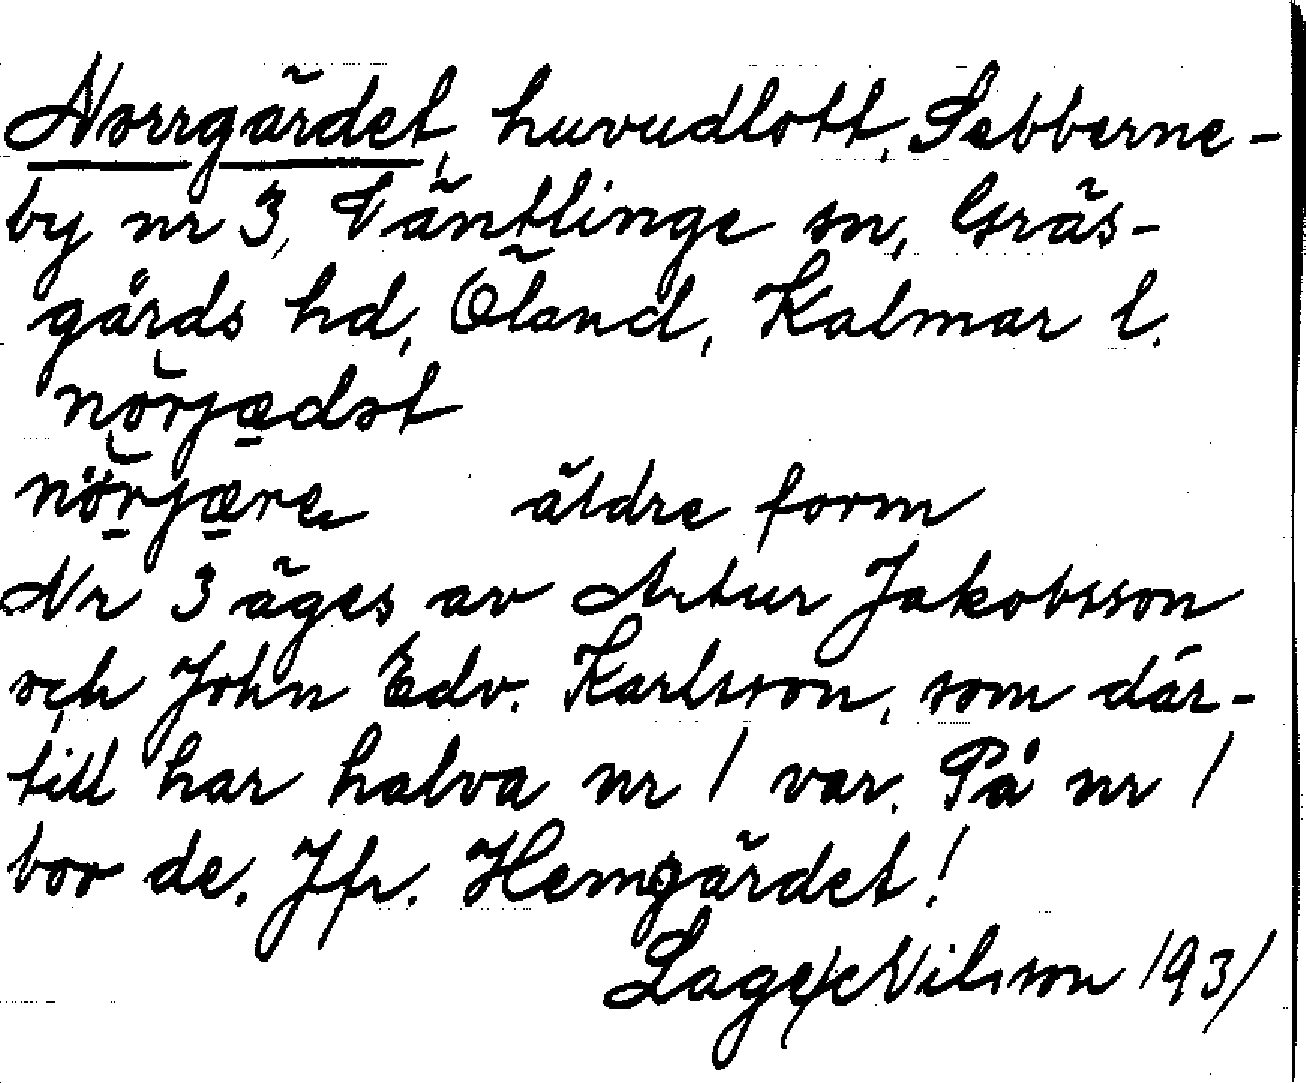 Norrgärdet, huvudlott, Sebberne-
by nr 3, Väntlinge sn, Gräs-
gårds hd, Öland, Kalmar l.
nörjædət
nörjære äldre form
Nr 3 äges av Artur Jakobsson
och John Edv. Karlsson, som där-
till har halva nr 1 var. På nr 1
bor de. Jfr. Hemgärdet!
Lage Nilsson 1931